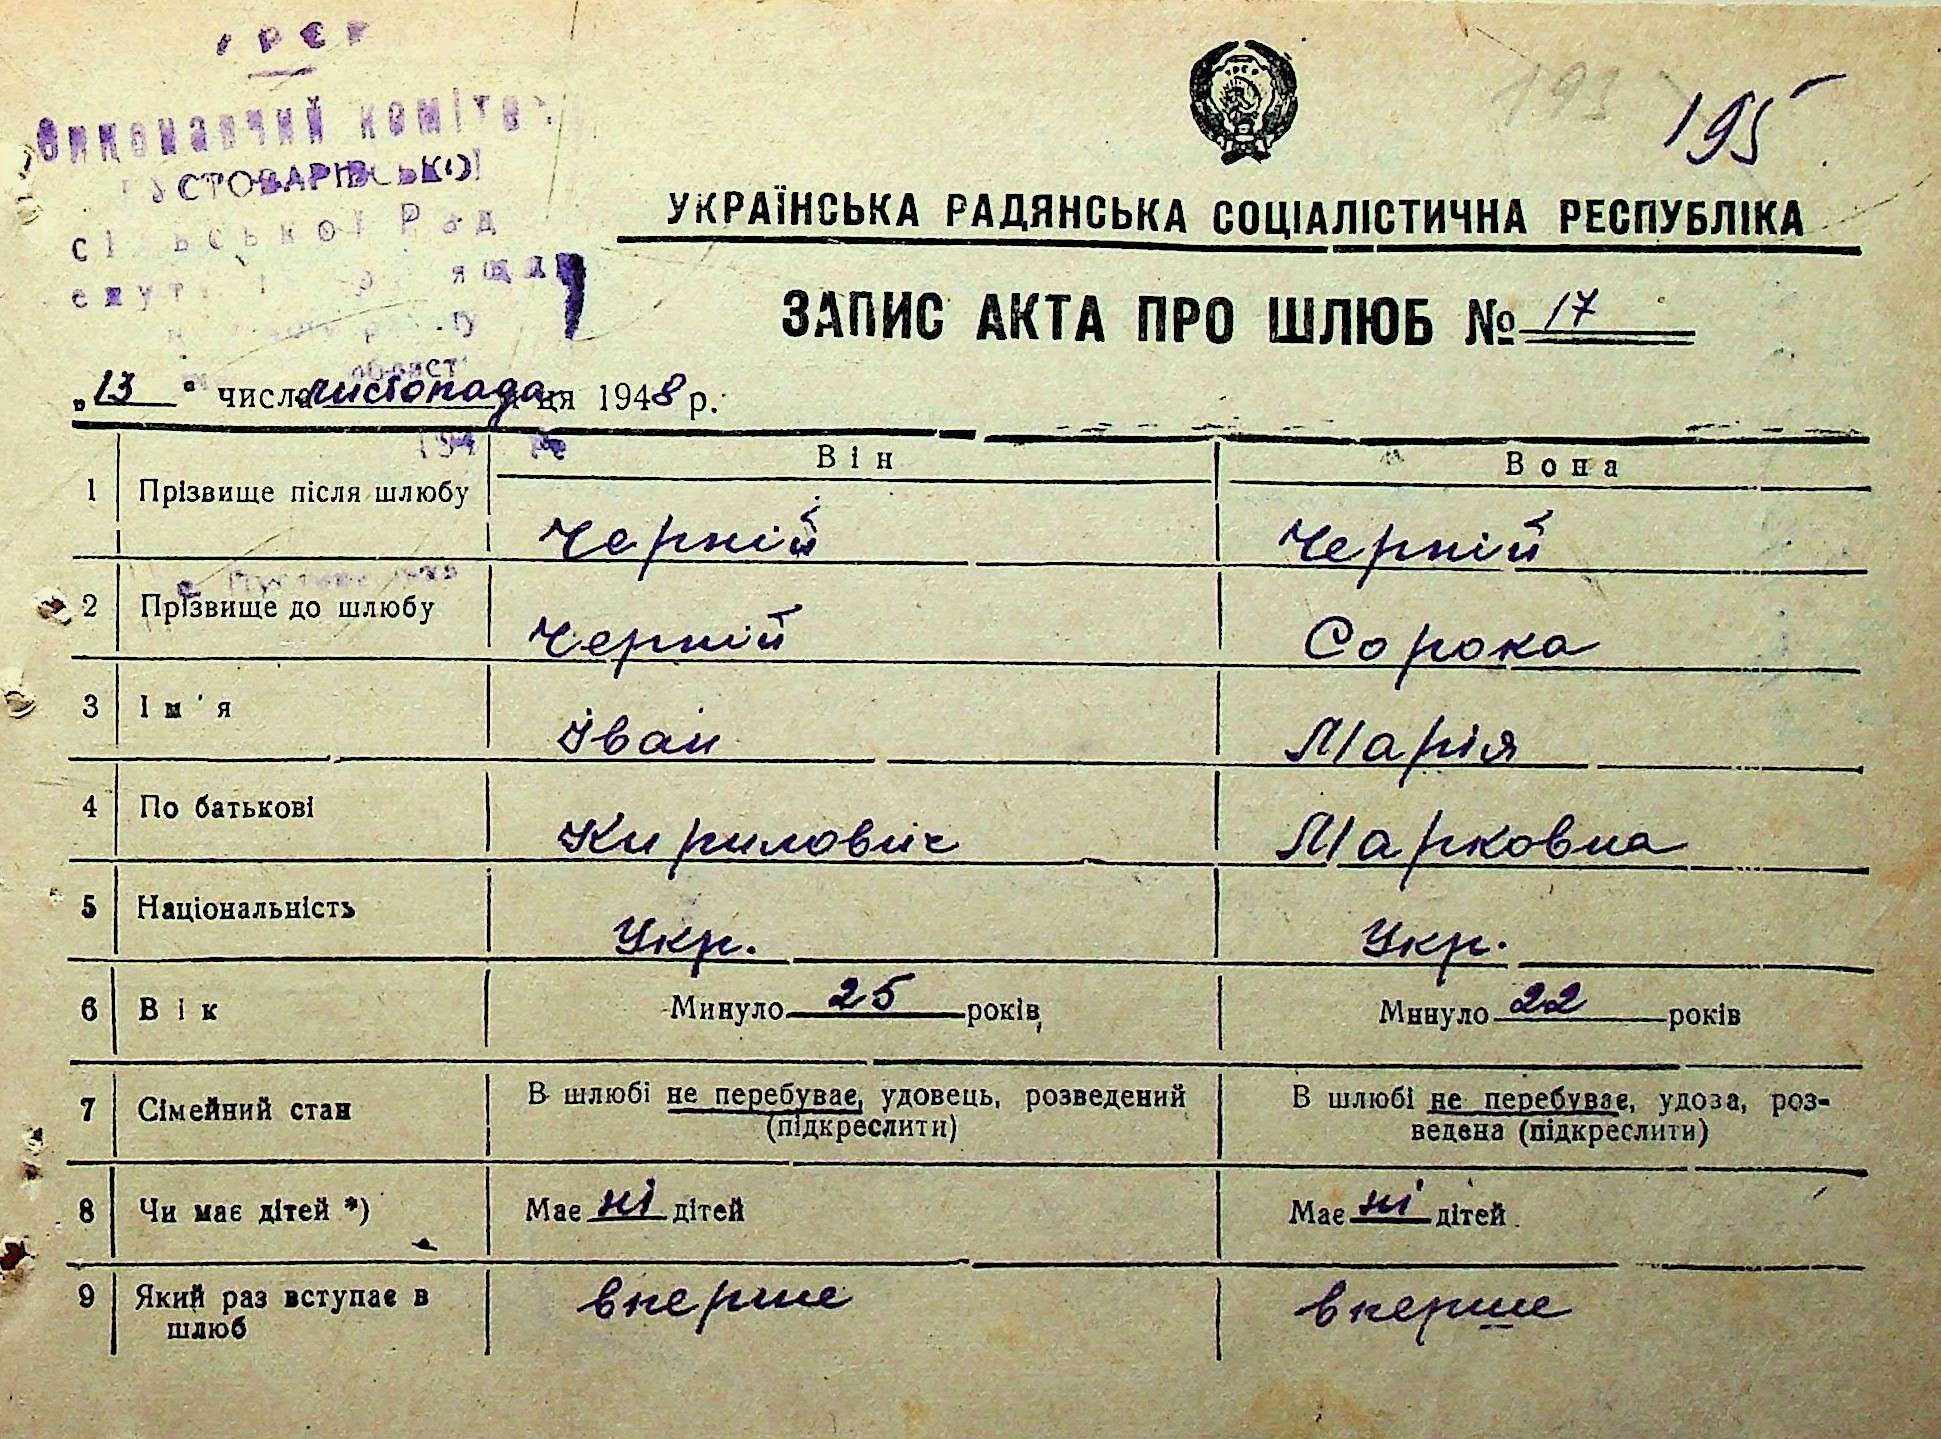 УРСР
Виконавчий комітет
ПУСТОВАРІВСЬКОЇ
сільської Рад
област
193
195
УКРАЇНСЬКА РАДЯНСЬКА СОЦІАЛІСТИЧНА РЕСПУБЛІКА
ЗАПИС АКТА ПРО ШЛЮБ № 17
„13“ числа листопада м-ця 1948 р.
194
Він Вона
1 Прізвище після шлюбу Черній Черній
2 Прізвище до шлюбу Черній Сорока
3 Ім'я Іван Марія
4 По батькові Кирилович Марковна
5 Національність Укр. Укр.
6 Вік Минуло 25 років Минуло 22 років
7 Сімейний стан В шлюбі не перебуває, удовець, розведений (підкреслити) В шлюбі не перебуває, удова, роз-
ведена (підкреслити)
8 Чи має дітей *) Має ні дітей Має ні дітей
9 Який раз вступає в шлюб вперше вперше